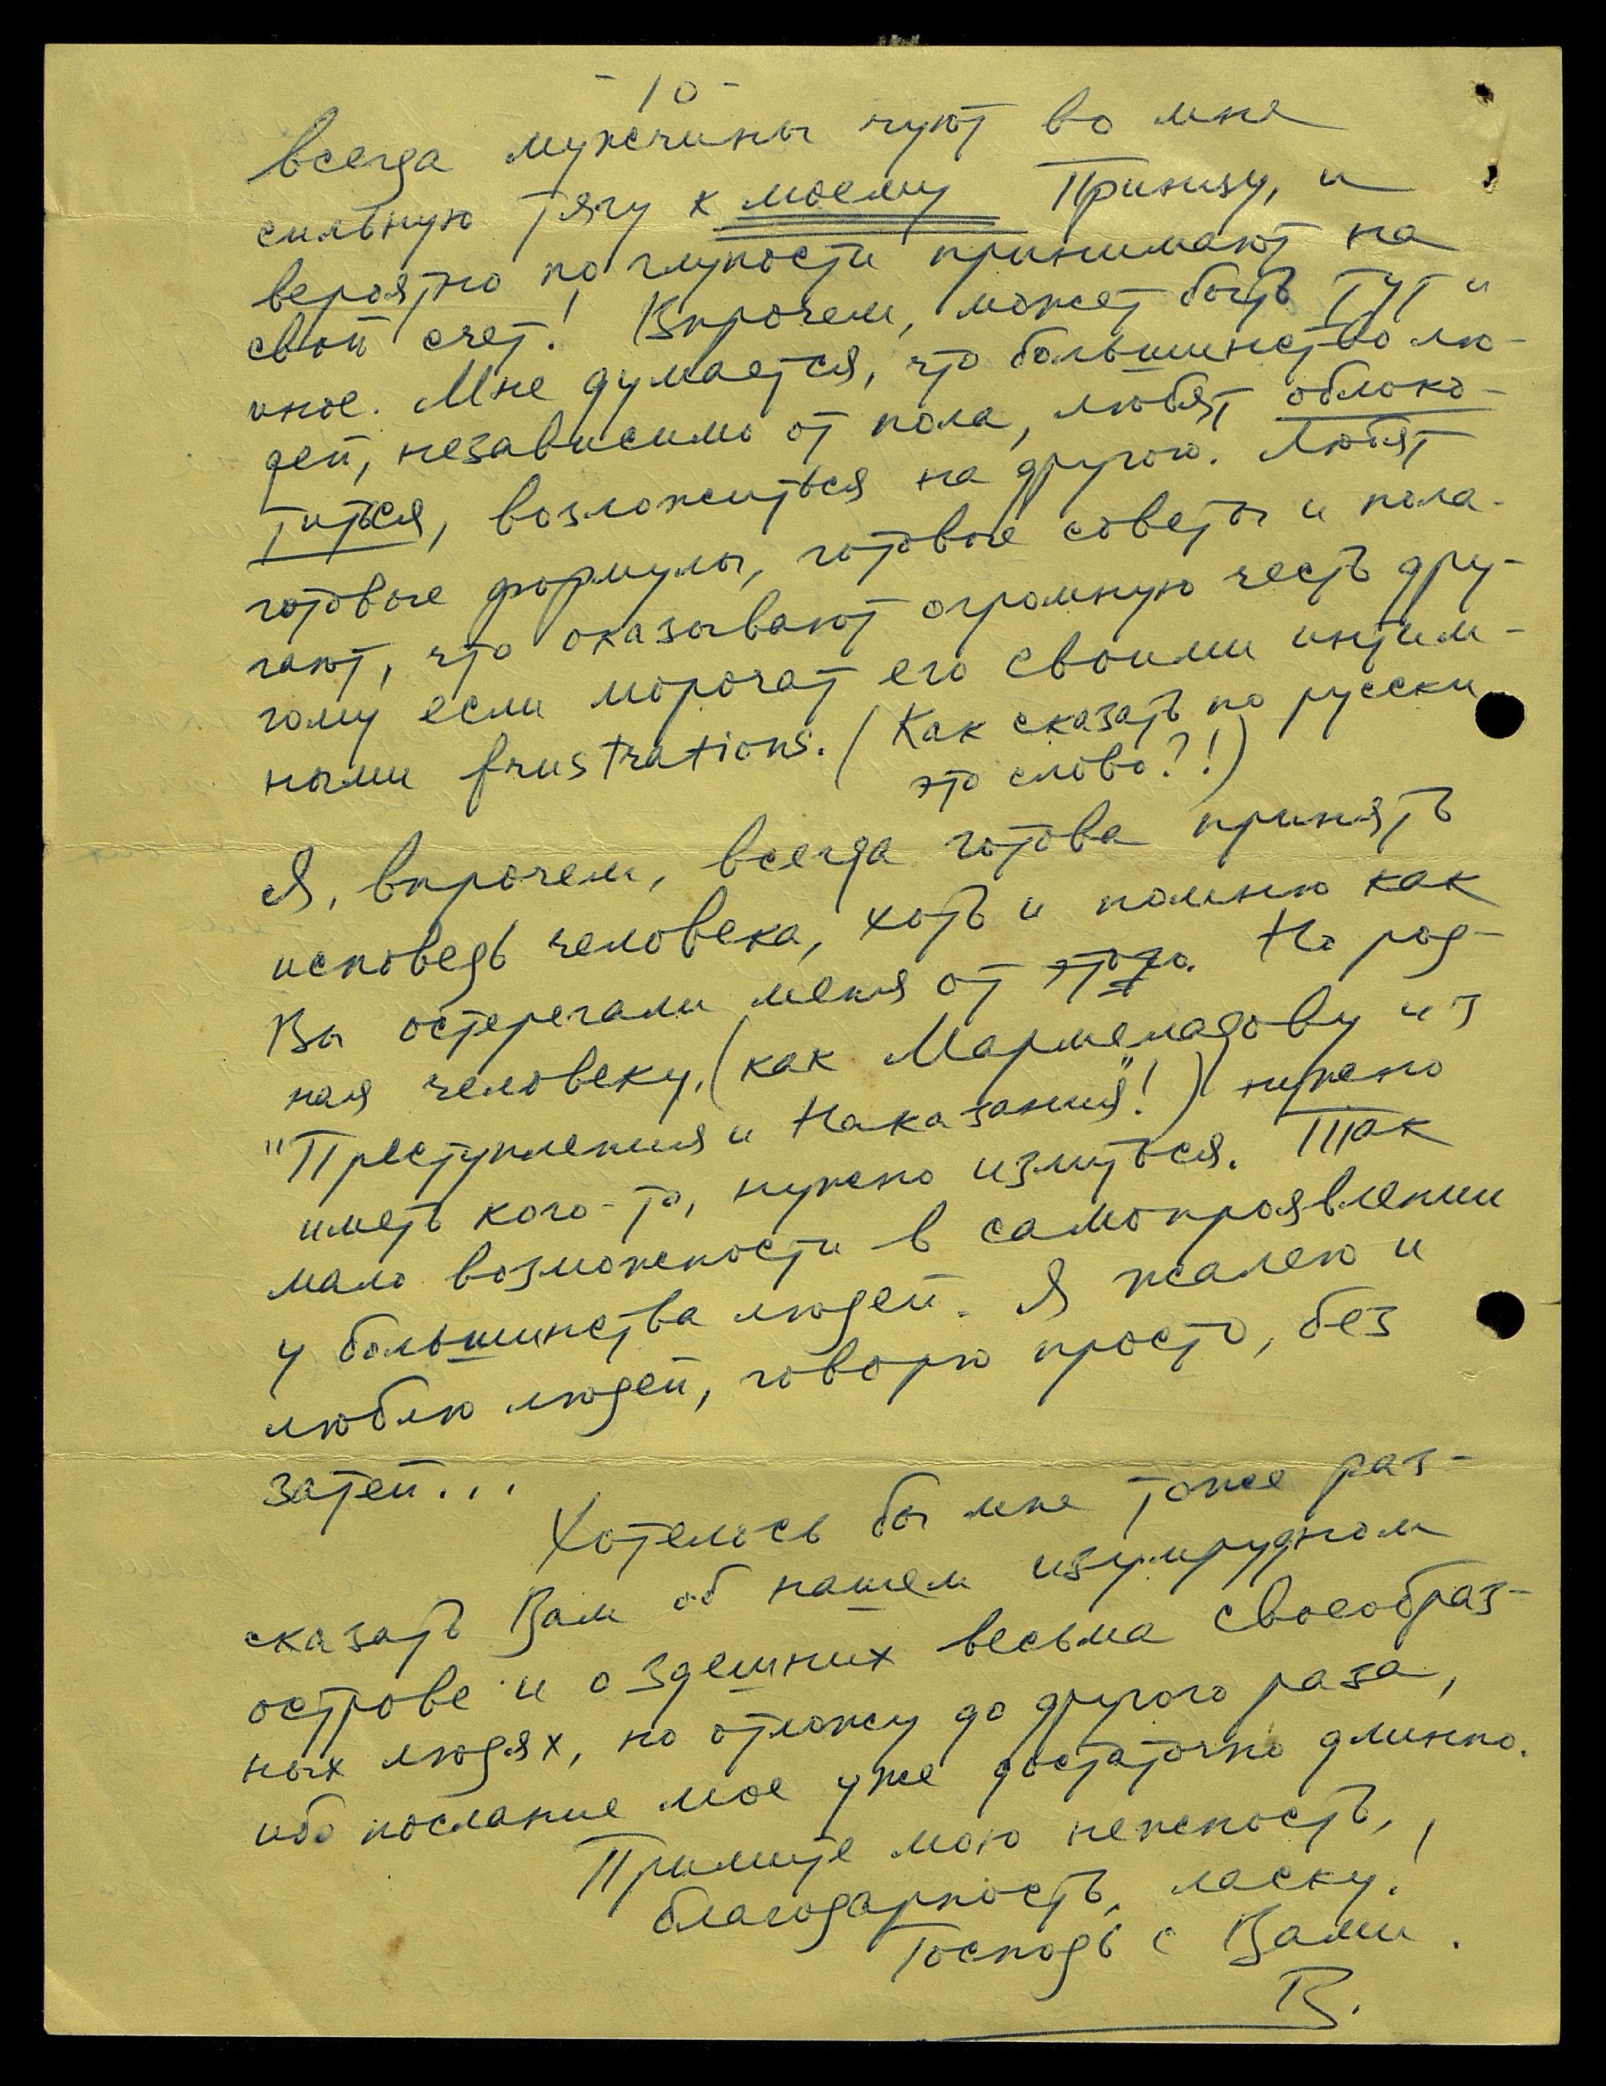 - 10 -
всегда мужчины чуют во мне
сильную тягу к моему Принцу, и
вероятно по глупости принимают на
свой счет! Впрочем, может быть тут и
иное. Мне думается, что большинство лю-
дей, независимо от пола, любят облоко-
титься, возложиться на другого. Любят
готовые формулы, готовые советы и пола-
гают, что оказывают огромную честь дру-
гому если морочат его своими интим-
ными frustrations. (Как сказать по русски
это слово?!)
Я, впрочем, всегда готова принять
исповедь человека, хоть и помню как
Вы остерегали меня от этого. Но род-
ная человеку, (как Мармеладову из
"Преступления и Наказания"!) нужно
иметь кого-то, нужно излиться. Так
мало возможности в самопроявлении
у большинства людей. Я жалею и
люблю людей, говорю просто, без
затей...
Хотелось бы мне тоже рас-
сказать Вам об нашем изумрудном
острове и о здешних весьма своеобраз-
ных людях, но отложу до другого раза,
ибо послание мое уже достаточно длинно.
Примите мою нежность,
благодарность, ласку!
Господь с Вами.
В.